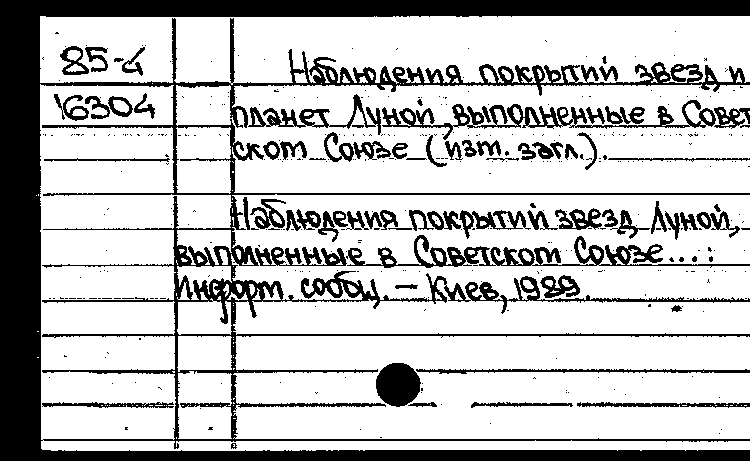 85-4
16304
Наблюдения покрытий звезд и
планет Луной, выполненные в Совет
ском Союзе (изм. загл.).
Наблюдения покрытий звезд Луной,
выполненные в Советском Союзе...:
Информ. сообщ. — Киев, 1989.